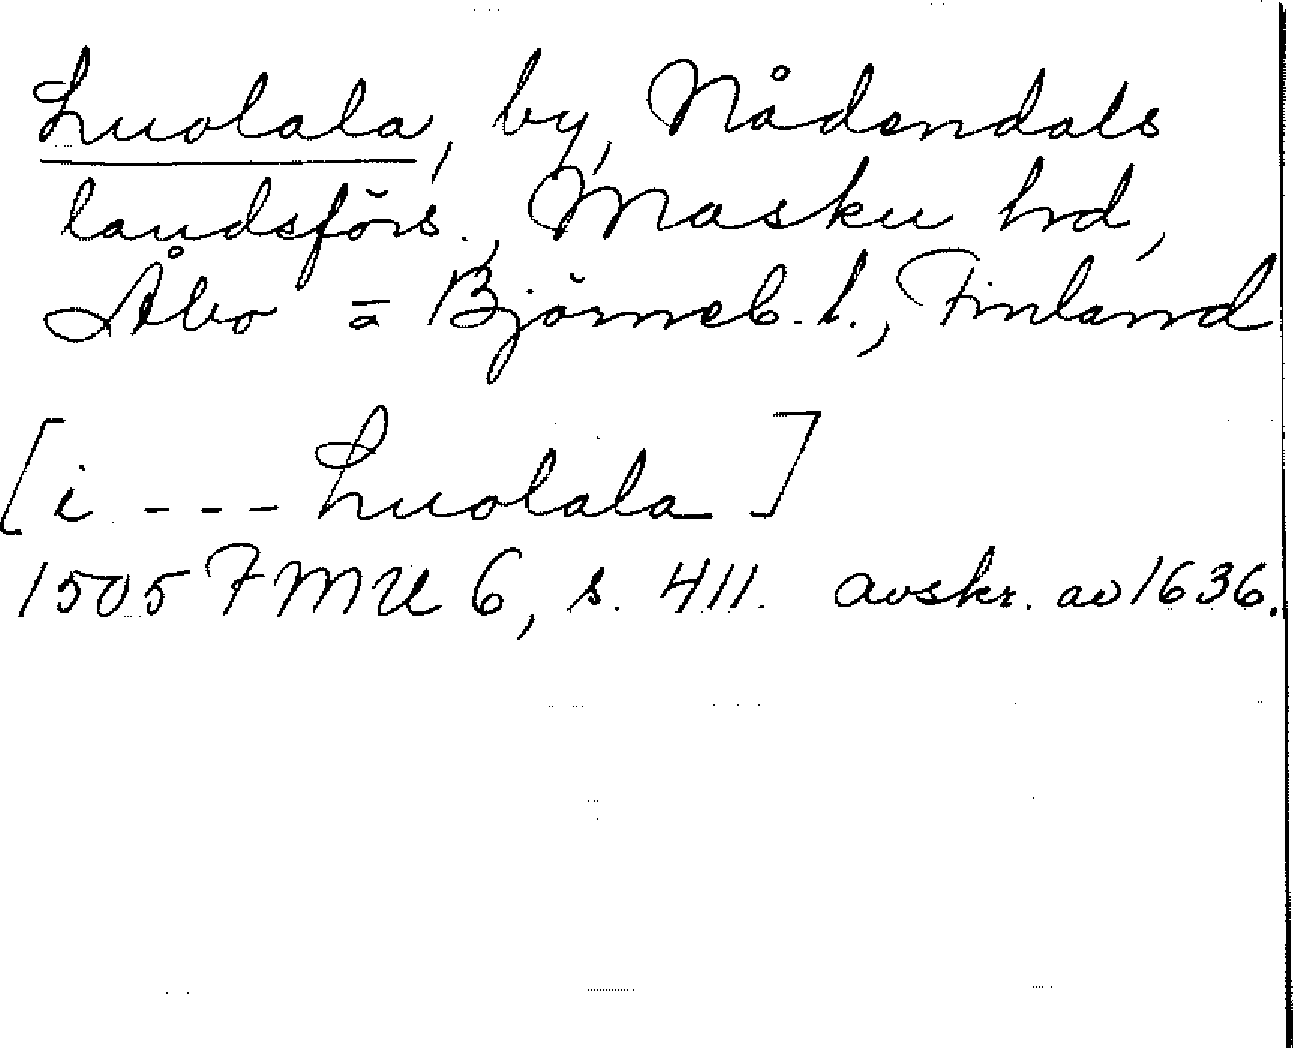 Luolala, by, Nådendals
landsförs., Masku hd,
Åbo = Björneb. l., Finland
[i --- Luolala]
1505 FMU 6, s. 411. avskr. av 1636.